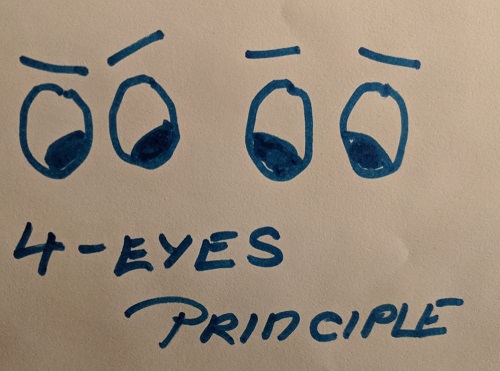 4-EYES
PRINCIPLE